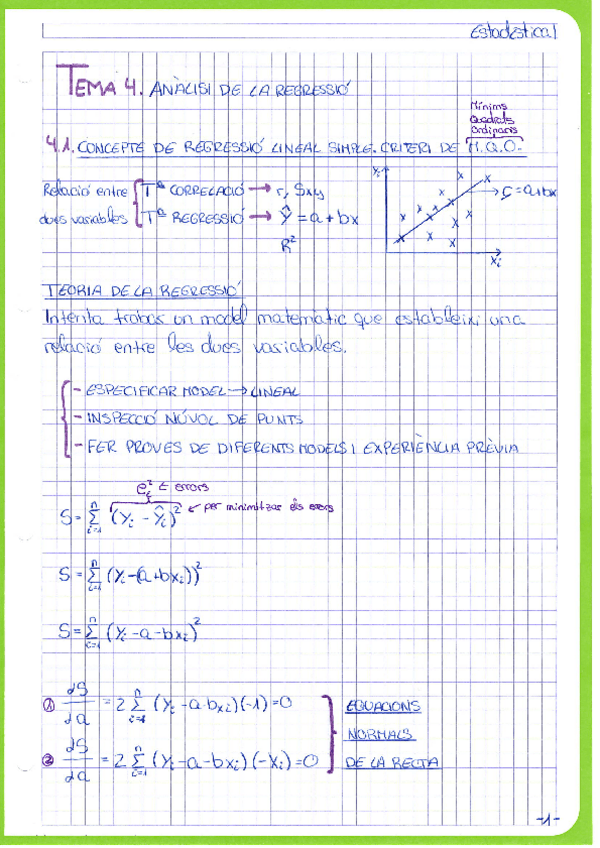 Estadística I
TEMA 4. ANÀLISI DE LA REGRESSIÓ
Mínims
Quadrats
Ordinaris
4.1. CONCEPTE DE REGRESSIÓ LINEAL SIMPLE. CRITERI DE M.Q.O.
Relació entre dues variables
Tª CORRELACIÓ → r, Sxy
Tª REGRESSIÓ → Ŷ = a + bx
R²
Yi
Xi
TEORIA DE LA REGRESSIÓ
Intenta trobar un model matemàtic que estableixi una
relació entre les dues variables.
- ESPECIFICAR MODEL → LINEAL
- INSPECCIÓ NÚVOL DE PUNTS
- FER PROVES DE DIFERENTS MODELS I EXPERIÈNCIA PRÈVIA
eᵢ² ← errors
S = Σⁿᵢ₌₁ (Yᵢ - Ŷᵢ)² ← per minimitzar els errors
S = Σⁿᵢ₌₁ (Yᵢ - (a + bxᵢ))²
S = Σⁿᵢ₌₁ (Yᵢ - a - bxᵢ)²
① dS/da = 2 Σⁿᵢ₌₁ (Yᵢ - a - bxᵢ)(-1) = 0
② dS/da = 2 Σⁿᵢ₌₁ (Yᵢ - a - bxᵢ)(-Xᵢ) = 0
EQUACIONS
NORMALS
DE LA RECTA
-1-